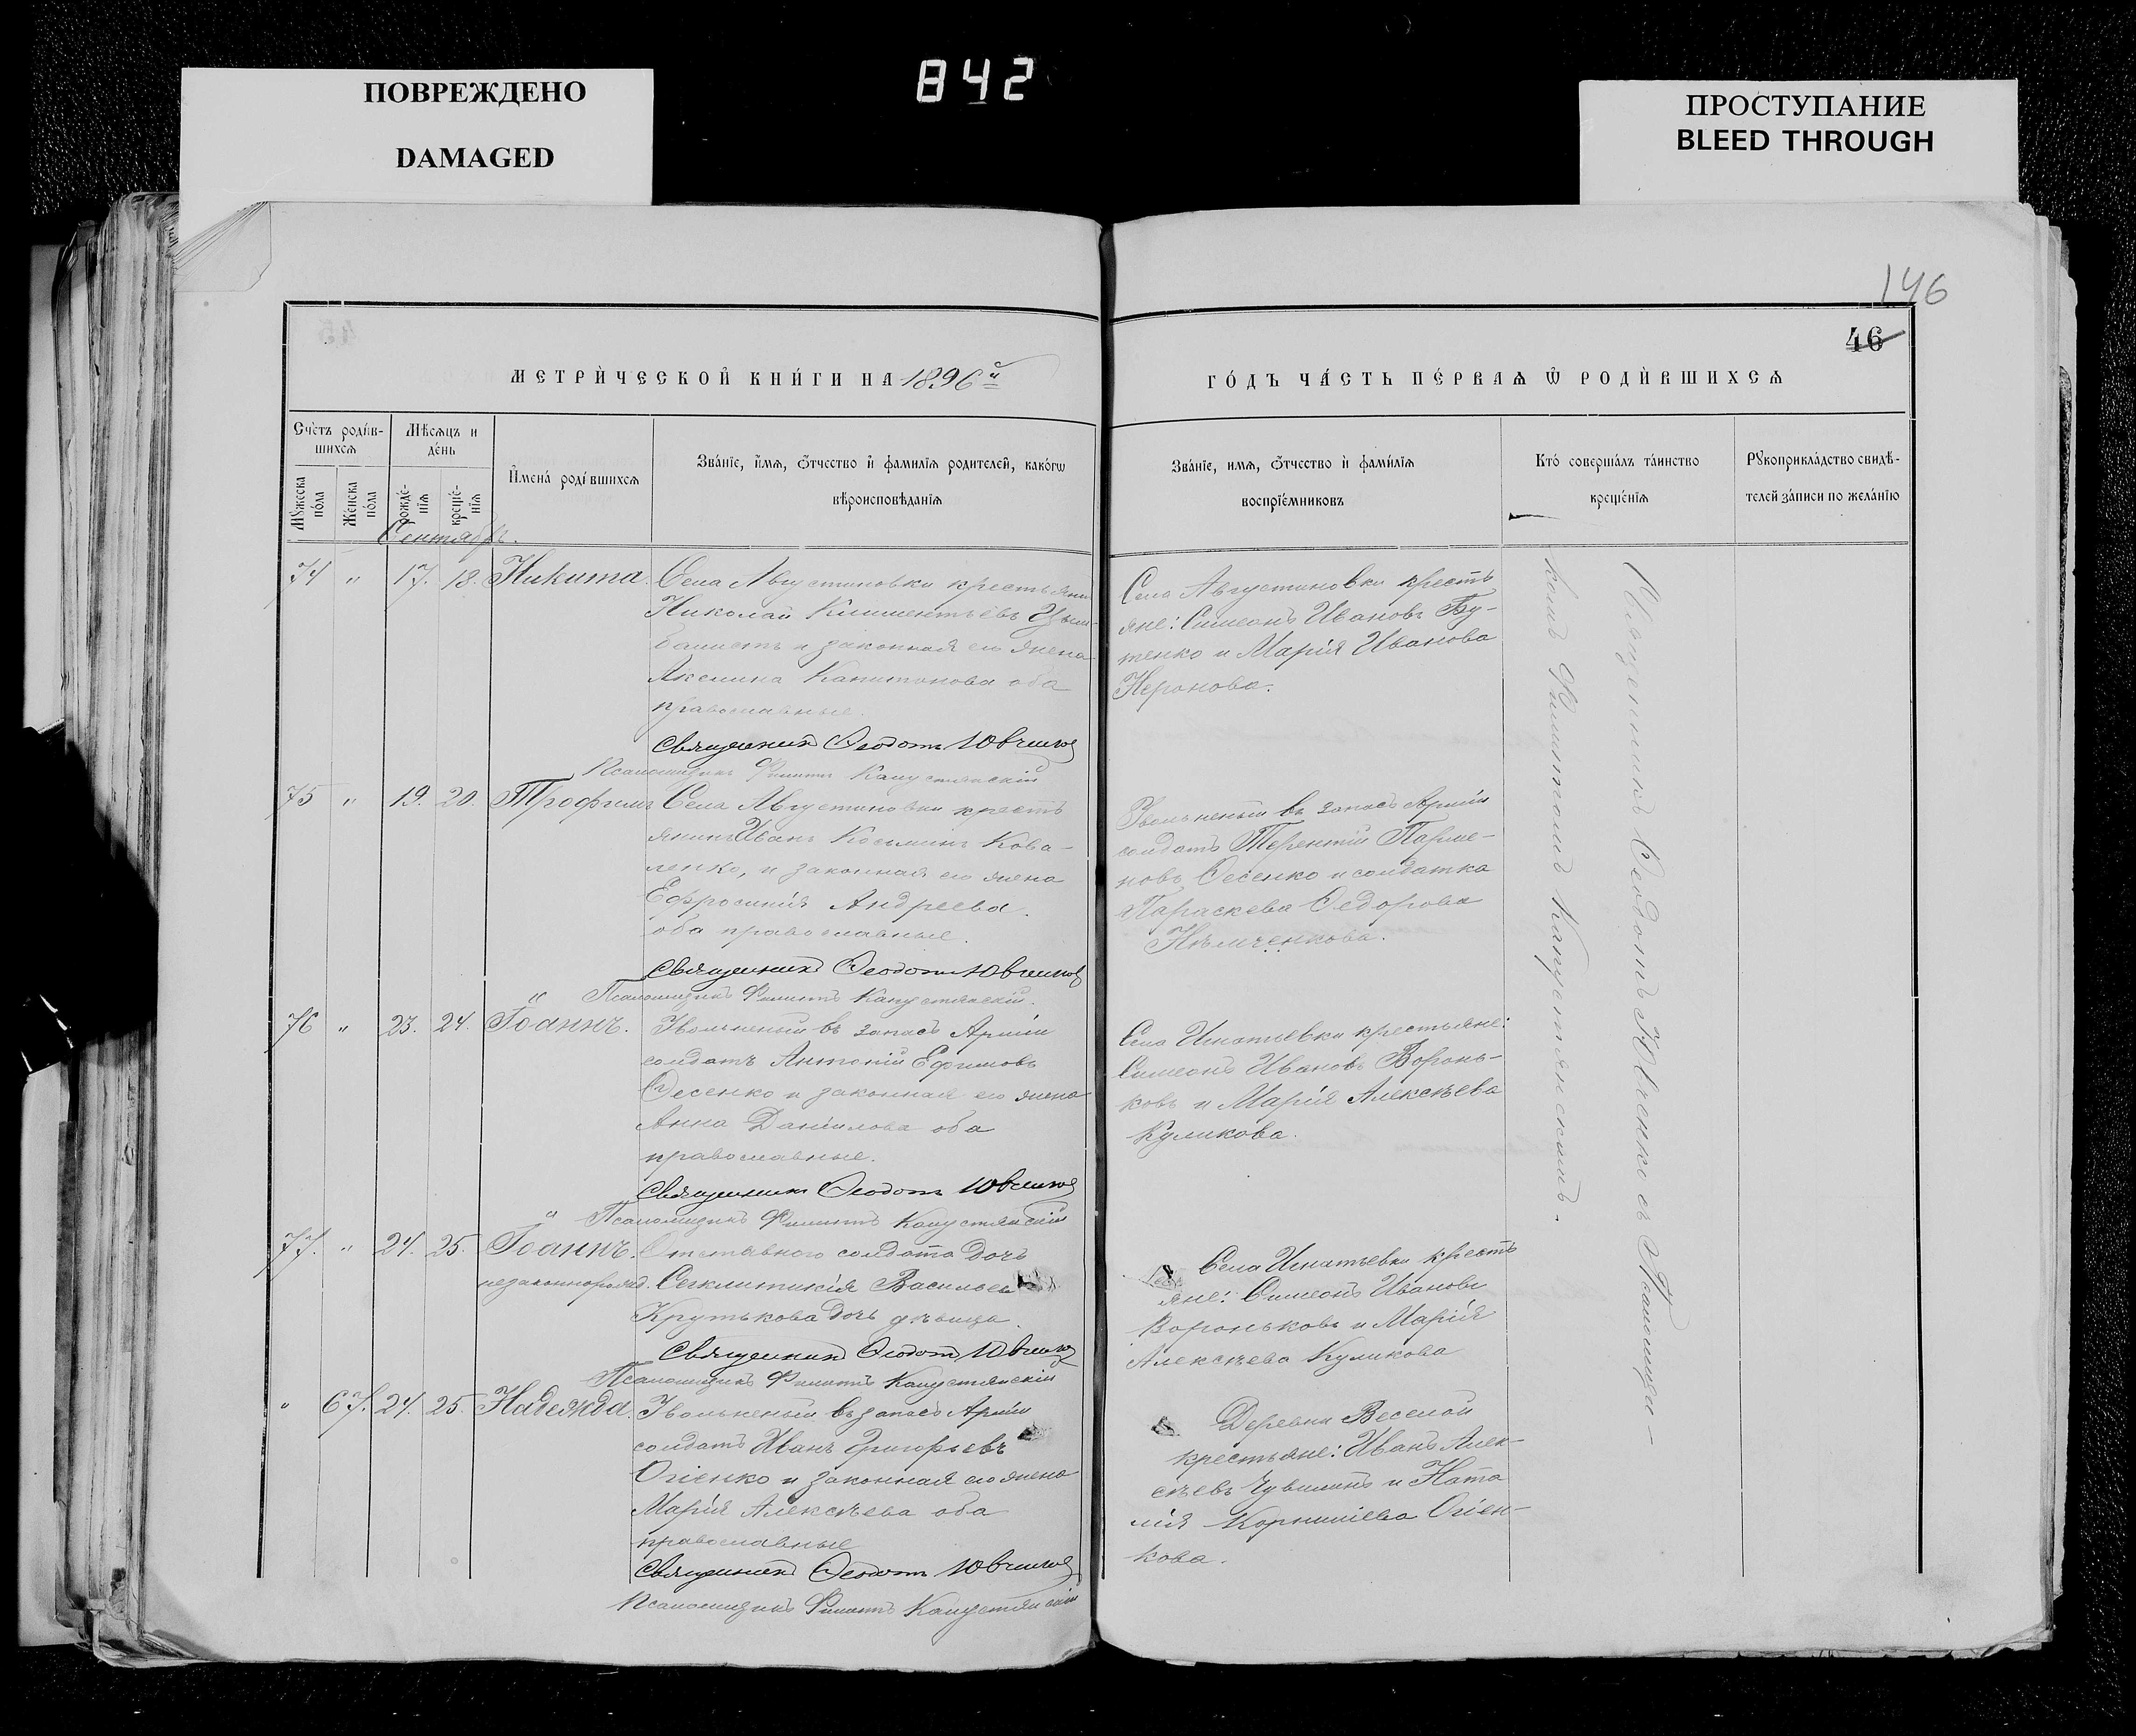 842
ПОВРЕЖДЕНО
DAMAGED
ПРОСТУПАНИЕ
BLEED THROUGH
146
46
МЕТРИ́ЧЕСКОЙ КНИ́ГИ НА 1896й
ГО́ДЪ ЧА́СТЬ ПЕ́РВАЯ Ѡ РОДИ́ВШИХСЯ
Сче́тъ роди́в-
шихся
Мꙋжеска по́ла
Же́нска по́ла
Мѣ́сяцъ и
де́нь
рожде́-
нїя
креще́-
нїя
Имена́ роди́вшихся
Зва́нїе, и́мя, ѻ҆́тчество и҆ фами́лїя роди́телей, како́гѡ
вѣроисповѣ́данїя
Зва́нїе, имя, ѻ҆́тчество и҆ фами́лїя
воспрїе́мниковъ
Кто́ соверша́лъ та́инство
креще́нїя
Рꙋкоприкла́дство свидѣ́-
телей за́писи по жела́нїю
Сентябрь.
74 " 17. 18. Никита.
Села Августиновки крестьянин
Николай Климентьевъ
и законная его жена
Акелина Капитонова оба
православные.
Священникъ Ѳеодотъ Ювченко
Псаломщикъ Филиппъ Капустянскій
Села Августиновки кресть
яне: Симеонъ Ивановъ Бу-
тенко и Марія Иванова
Неронова.
75 " 19. 20. Трофимъ
Села Августиновки кресть
янинъ Иванъ Косьминъ Кова-
ленко, и законная его жена
Ефросинія Андреева.
оба православные.
Священникъ Ѳеодотъ Ювченко
Псаломщикъ Филиппъ Капустянскій.
Уволненный въ запасъ Арміи
солдатъ Терентій Парме-
новъ Ѳесенко и солдатка
Параскева Ѳедорова
Нѣмченкова.
76 " 23. 24. Іоаннъ.
Уволненный въ запасъ Арміи
солдатъ Антоній Ефимовъ
Ѳесенко и законная его жена
Анна Даніилова оба
православные.
Священникъ Ѳеодотъ Ювченко
Псаломщикъ Филиппъ Капустянскій
Села Игнатьевки крестьяне:
Симеонъ Ивановъ Воронь-
ковъ и Марія Алексѣева
Куликова.
77. " 24. 25. Іоаннъ.
незаконнорожд.
Отставного солдата дочь
Сегклитикія Васильева
Крутькова дочь дѣвица.
Священникъ Ѳеодотъ Ювченко
Псаломщикъ Филиппъ Капустянскій
Села Игнатьевки кресть
яне: Симеонъ Ивановъ
Вороньковъ и Марія
Алексѣева Куликова
" 67. 24. 25. Надежда.
Уволненный въ запасъ Арміи
солдатъ Иванъ Григорьевъ
Огіенко и законная его жена
Марія Алексѣева оба
православные
Священникъ Ѳеодотъ Ювченко
Псаломщикъ Филиппъ Капустянскій
Деревни Веселой
крестьяне: Иванъ Алек-
сѣевъ Чувилинъ и Ната
лія Корниліева Огіен-
кова.
Священникъ Ѳеодотъ Ювченко съ Псаломщи-
комъ Филиппомъ Капустянскимъ.